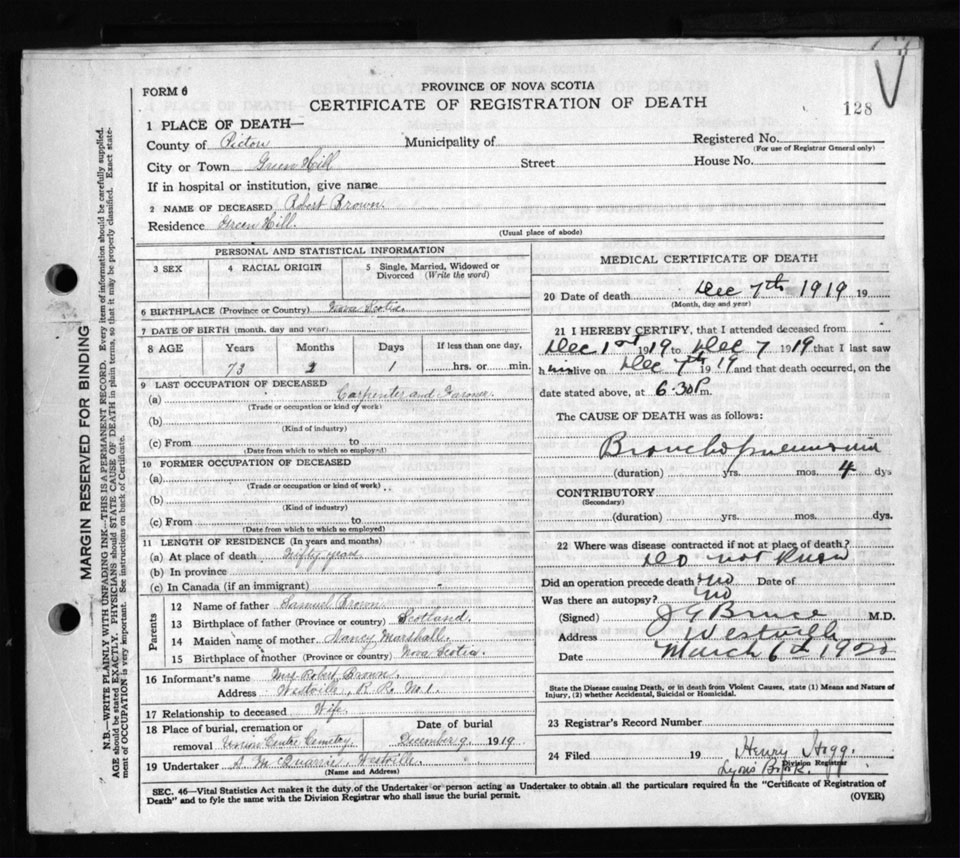 FORM 6
PROVINCE OF NOVA SCOTIA
CERTIFICATE OF REGISTRATION OF DEATH
128
1 PLACE OF DEATH—
County of Pictou Municipality of Registered No.
(For use of Registrar General only)
City or Town Green Hill Street House No.
If in hospital or institution, give name
2 NAME OF DECEASED Robert Brown.
Residence Green Hill.
(Usual place of abode)
PERSONAL AND STATISTICAL INFORMATION
3 SEX 4 RACIAL ORIGIN 5 Single, Married, Widowed or Divorced (Write the word)
6 BIRTHPLACE (Province or Country) Nova Scotia.
7 DATE OF BIRTH (month, day and year)
8 AGE Years Months Days If less than one day,
73 2 1 hrs. or min.
9 LAST OCCUPATION OF DECEASED
(a) Carpenter and Farmer.
(Trade or occupation or kind of work)
(b)
(Kind of industry)
(c) From to
(Date from which to which so employed)
10 FORMER OCCUPATION OF DECEASED
(a)
(Trade or occupation or kind of work)
(b)
(Kind of industry)
(c) From to
(Date from which to which so employed)
11 LENGTH OF RESIDENCE (In years and months)
(a) At place of death years
(b) In province
(c) In Canada (if an immigrant)
Parents
12 Name of father Samuel Brown
13 Birthplace of father (Province or country) Scotland.
14 Maiden name of mother Nancy Marshall.
15 Birthplace of mother (Province or country) Nova Scotia.
16 Informant's name Mrs Robert Brown.
Address Westville, R. R. No. 1.
17 Relationship to deceased Wife.
18 Place of burial, cremation or removal Union Centre Cemetery. Date of burial December 9. 1919
19 Undertaker A. McQuarrie, Westville.
(Name and Address)
MEDICAL CERTIFICATE OF DEATH
20 Date of death Dec 7th 1919 19
(Month, day and year)
21 I HEREBY CERTIFY, that I attended deceased from
Dec 1st 1919 to Dec 7 1919 that I last saw
him alive on Dec 7th 1919 and that death occurred, on the
date stated above, at 6.30 P.m.
The CAUSE OF DEATH was as follows:
Bronchopneumonia
(duration) yrs. mos. 4 dys
CONTRIBUTORY
(Secondary)
(duration) yrs. mos. dys.
22 Where was disease contracted if not at place of death?
Do not know
Did an operation precede death? no Date of
Was there an autopsy? no
(Signed) J G Bruce M.D.
Address Westville
Date March 6th 1920
State the Disease causing Death, or in death from Violent Causes, state (1) Means and Nature of
Injury, (2) whether Accidental, Suicidal or Homicidal.
23 Registrar's Record Number
24 Filed 19 Henry Hogg.
Division Registrar
Lyons Brook.
SEC. 46—Vital Statistics Act makes it the duty of the Undertaker or person acting as Undertaker to obtain all the particulars required in the "Certificate of Registration of
Death" and to fyle the same with the Division Registrar who shall issue the burial permit.
(OVER)
MARGIN RESERVED FOR BINDING
N.B.—WRITE PLAINLY WITH UNFADING INK—THIS IS A PERMANENT RECORD. Every item of information should be carefully supplied.
AGE should be stated EXACTLY. PHYSICIANS should STATE CAUSE OF DEATH in plain terms, so that it may be properly classified. Exact statement of OCCUPATION is very important. See instructions on back of Certificate.